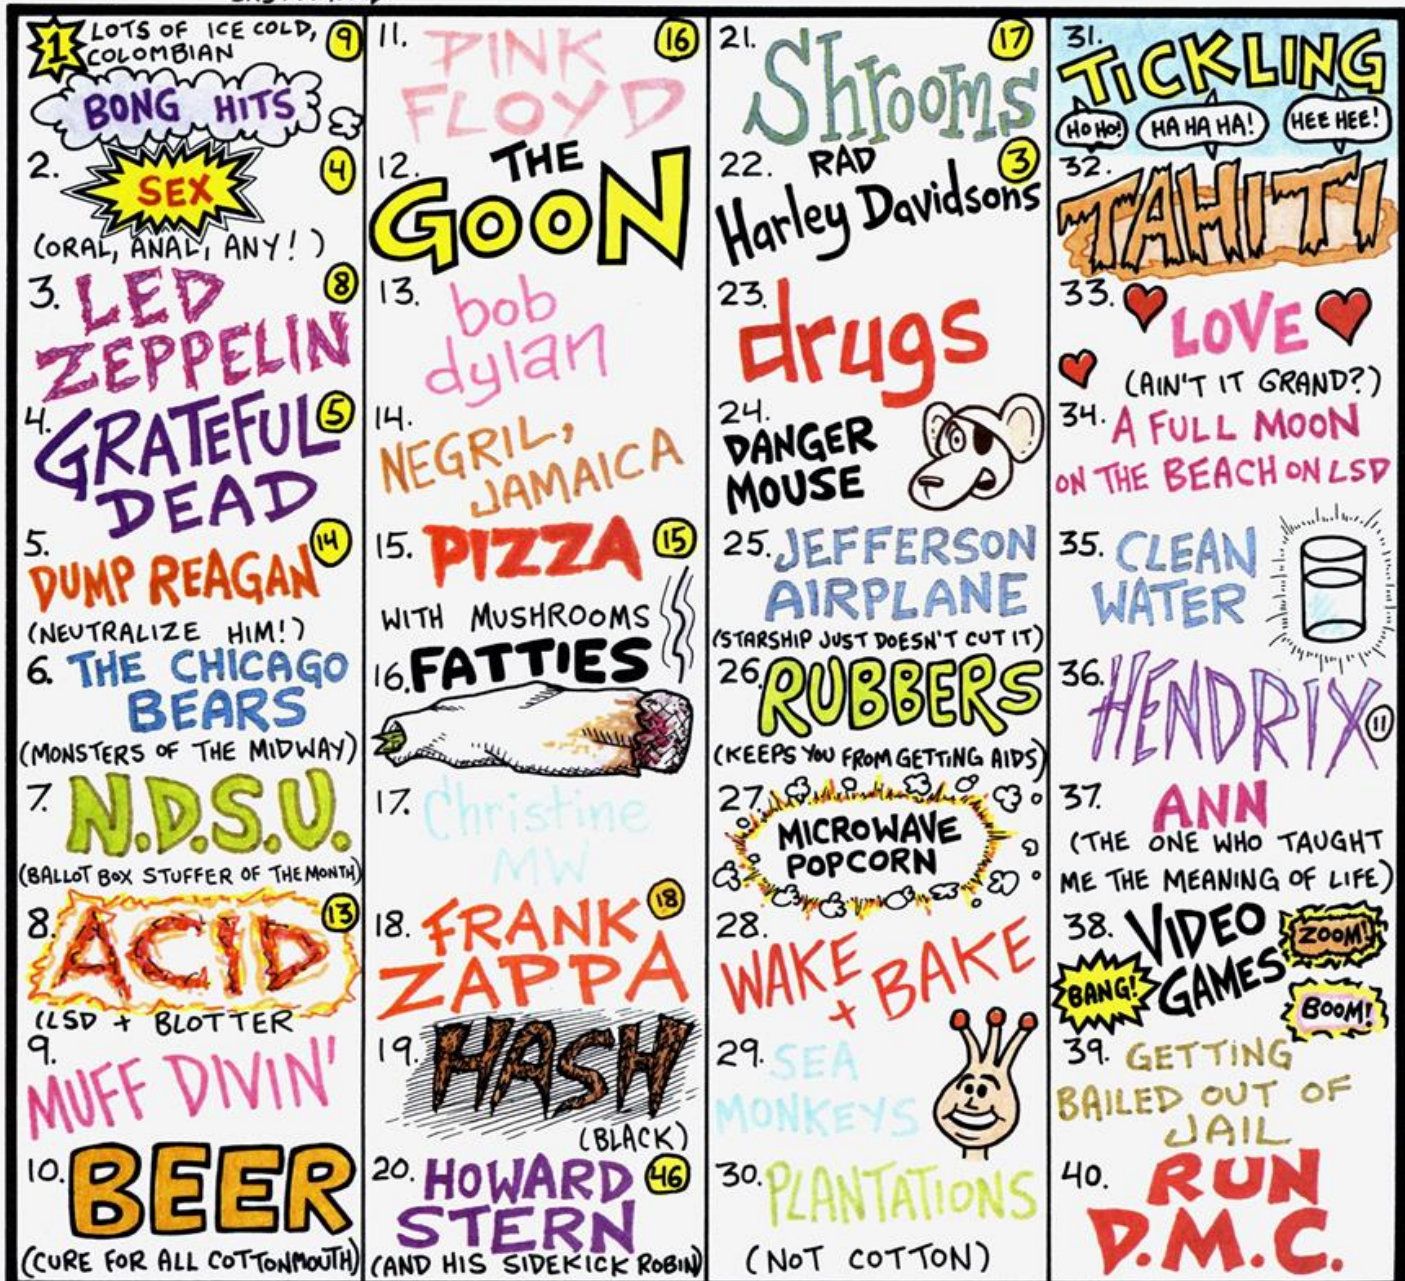 1 LOTS OF ICE COLD, 9
COLOMBIAN
BONG HITS
2. SEX 4
(ORAL, ANAL, ANY!)
3. LED 8
ZEPPELIN
4. GRATEFUL 5
DEAD
5. 14
DUMP REAGAN
(NEUTRALIZE HIM!)
6. THE CHICAGO
BEARS
(MONSTERS OF THE MIDWAY)
7. N.D.S.U.
(BALLOT BOX STUFFER OF THE MONTH)
8. ACID 13
(LSD + BLOTTER
9.
MUFF DIVIN'
10. BEER
(CURE FOR ALL COTTONMOUTH)
11. PINK 16
FLOYD
12. THE
GOON
13. bob
dylan
14.
NEGRIL,
JAMAICA
15. PIZZA 15
WITH MUSHROOMS
16. FATTIES
17. Christine
MW
18. FRANK 18
ZAPPA
19. HASH
(BLACK)
20. HOWARD 46
STERN
(AND HIS SIDEKICK ROBIN)
21. Shrooms 17
22. RAD 3
Harley Davidsons
23.
drugs
24.
DANGER
MOUSE
25. JEFFERSON
AIRPLANE
(STARSHIP JUST DOESN'T CUT IT)
26. RUBBERS
(KEEPS YOU FROM GETTING AIDS)
27.
MICROWAVE
POPCORN
28.
WAKE + BAKE
29. SEA
MONKEYS
30. PLANTATIONS
(NOT COTTON)
31.
TICKLING
HO HO! HA HA HA! HEE HEE!
32.
TAHITI
33.
LOVE
(AIN'T IT GRAND?)
34. A FULL MOON
ON THE BEACH ON LSD
35. CLEAN
WATER
36.
HENDRIX 11
37. ANN
(THE ONE WHO TAUGHT
ME THE MEANING OF LIFE)
38. VIDEO ZOOM!
BANG! GAMES
BOOM!
39. GETTING
BAILED OUT OF
JAIL
40. RUN
D.M.C.